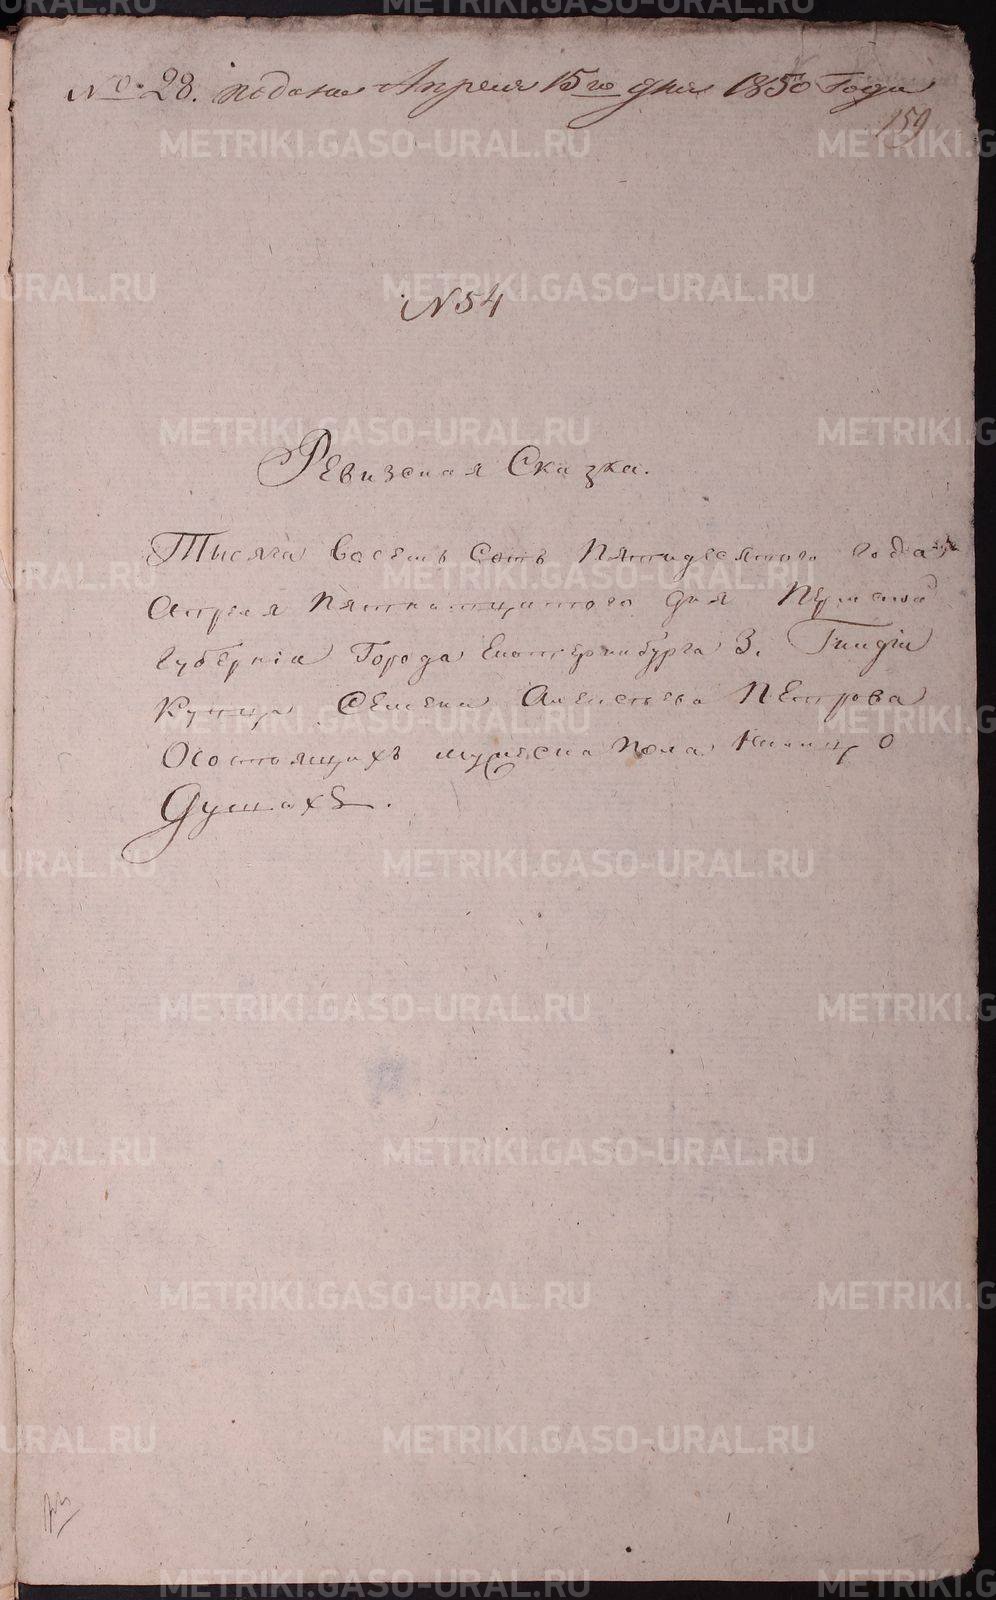 № 28. подана Апреля 15го дня 1850 Года
159
N 54
Ревизская Сказка.
Тысяча восемь Сотъ Пятидесятого года
Апреля Пятнатцатого дня Пермской
Губернiи Города Екатеринбурга 3. Гилдiи
Купца Семена Алексеева Петрова
О состоящихъ мужеска пола налицо
Душахъ.
METRIKI.GASO-URAL.RU